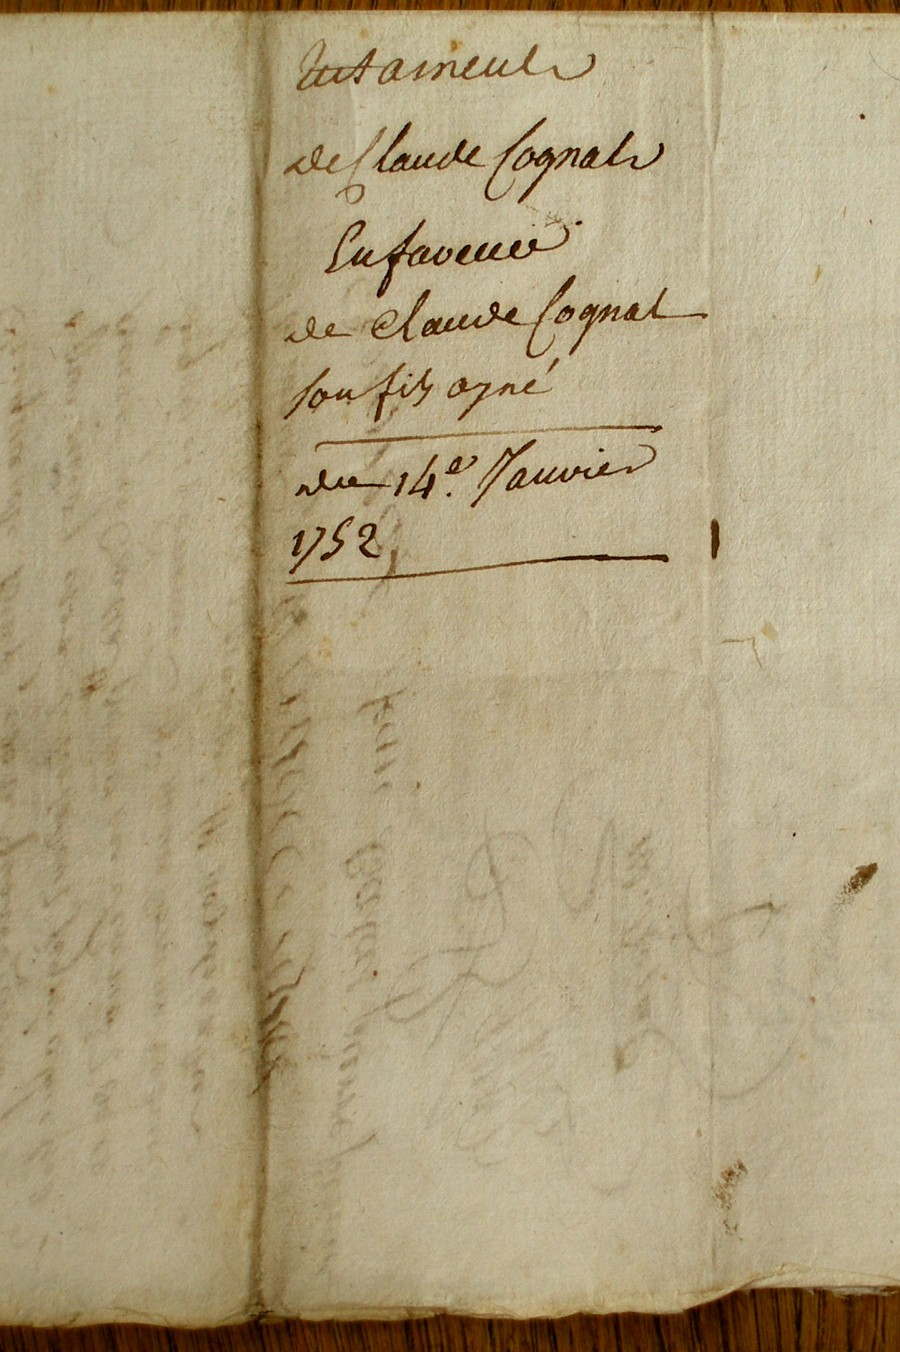 Testament
de Claude Cognat
En faveur
de Claude Cognat
son fils ayné
du 14e. Janvier
1752